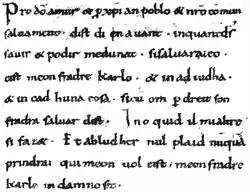 Pro dõ amur & p xp̃ian poblo & nr̃o cõmun
saluament. dist di en auant. inquantdſ
sauir & podir medunat. sisaluaraieo.
cist meon fradre karlo. & in adiudha
& in cad huna cosa. sicũ om p dreit son
fradra saluar dist. Ino quid il mialtre
si faz&. Et abludher nul plaid nũquã
prindrai qui meon uol cist. meonfradre
karle in damno sit.